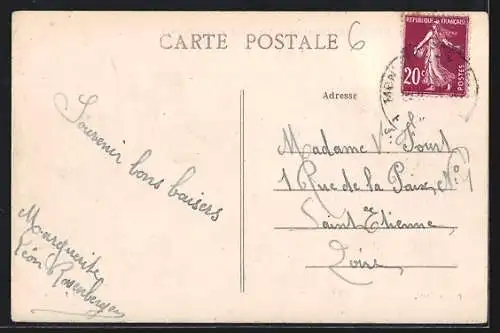 CARTE POSTALE
6
RÉPUBLIQUE FRANÇAISE
20c
POSTES
Adresse
Souvenir bons baisers
Marguerite
Léon Rosenberger
Madame Vve
1 Rue de la Paix, No 1
Saint Etienne
Loire